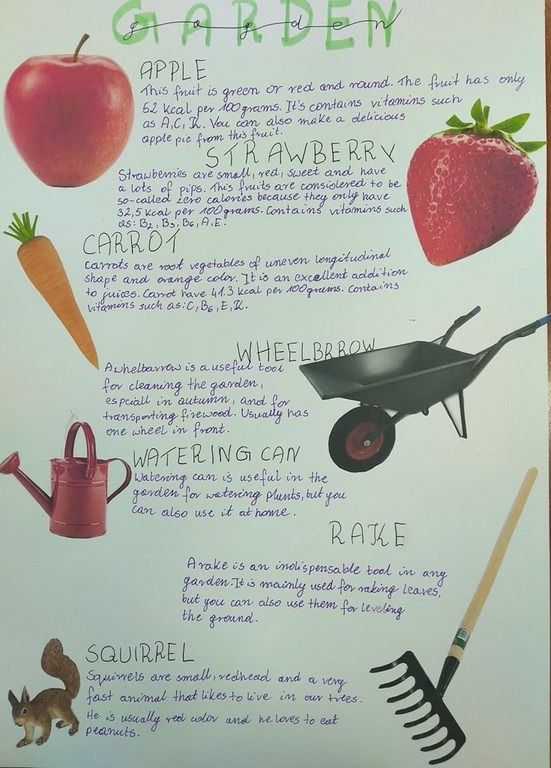 GARDEN
garden
APPLE
This fruit is green or red and round. The fruit has only
52 kcal per 100grams. It's contains vitamins such
as A,C,K. You can also make a delicious
apple pie from this fruit.
STRAWBERRY
Strawberries are small, red, sweet and have
a lots of pips. This fruits are considered to be
so-called zero calories because they only have
32,5 kcal per 100grams. Contains vitamins such
as: B2, B3, B6, A, E.
CARROT
Carrots are root vegetables of uneven longitudinal
shape and orange color. It is an excellent addition
to juices. Carrot have 41.3 kcal per 100grams. Contains
vitamins such as: C, B6, E, K.
WHEELBRROW
A whelbarrow is a useful tool
for cleaning the garden,
especiall in autumn, and for
transporting firewood. Usually has
one wheel in front.
WATERING CAN
Watering can is useful in the
garden for watering plants, but you
can also use it at home.
RAKE
A rake is an indispensable tool in any
garden. It is mainly used for raking leaves,
but you can also use them for leveling
the ground.
SQUIRREL
Squirrels are small, redhead and a very
fast animal that likes to live in our trees.
He is usually red color and he loves to eat
peanuts.